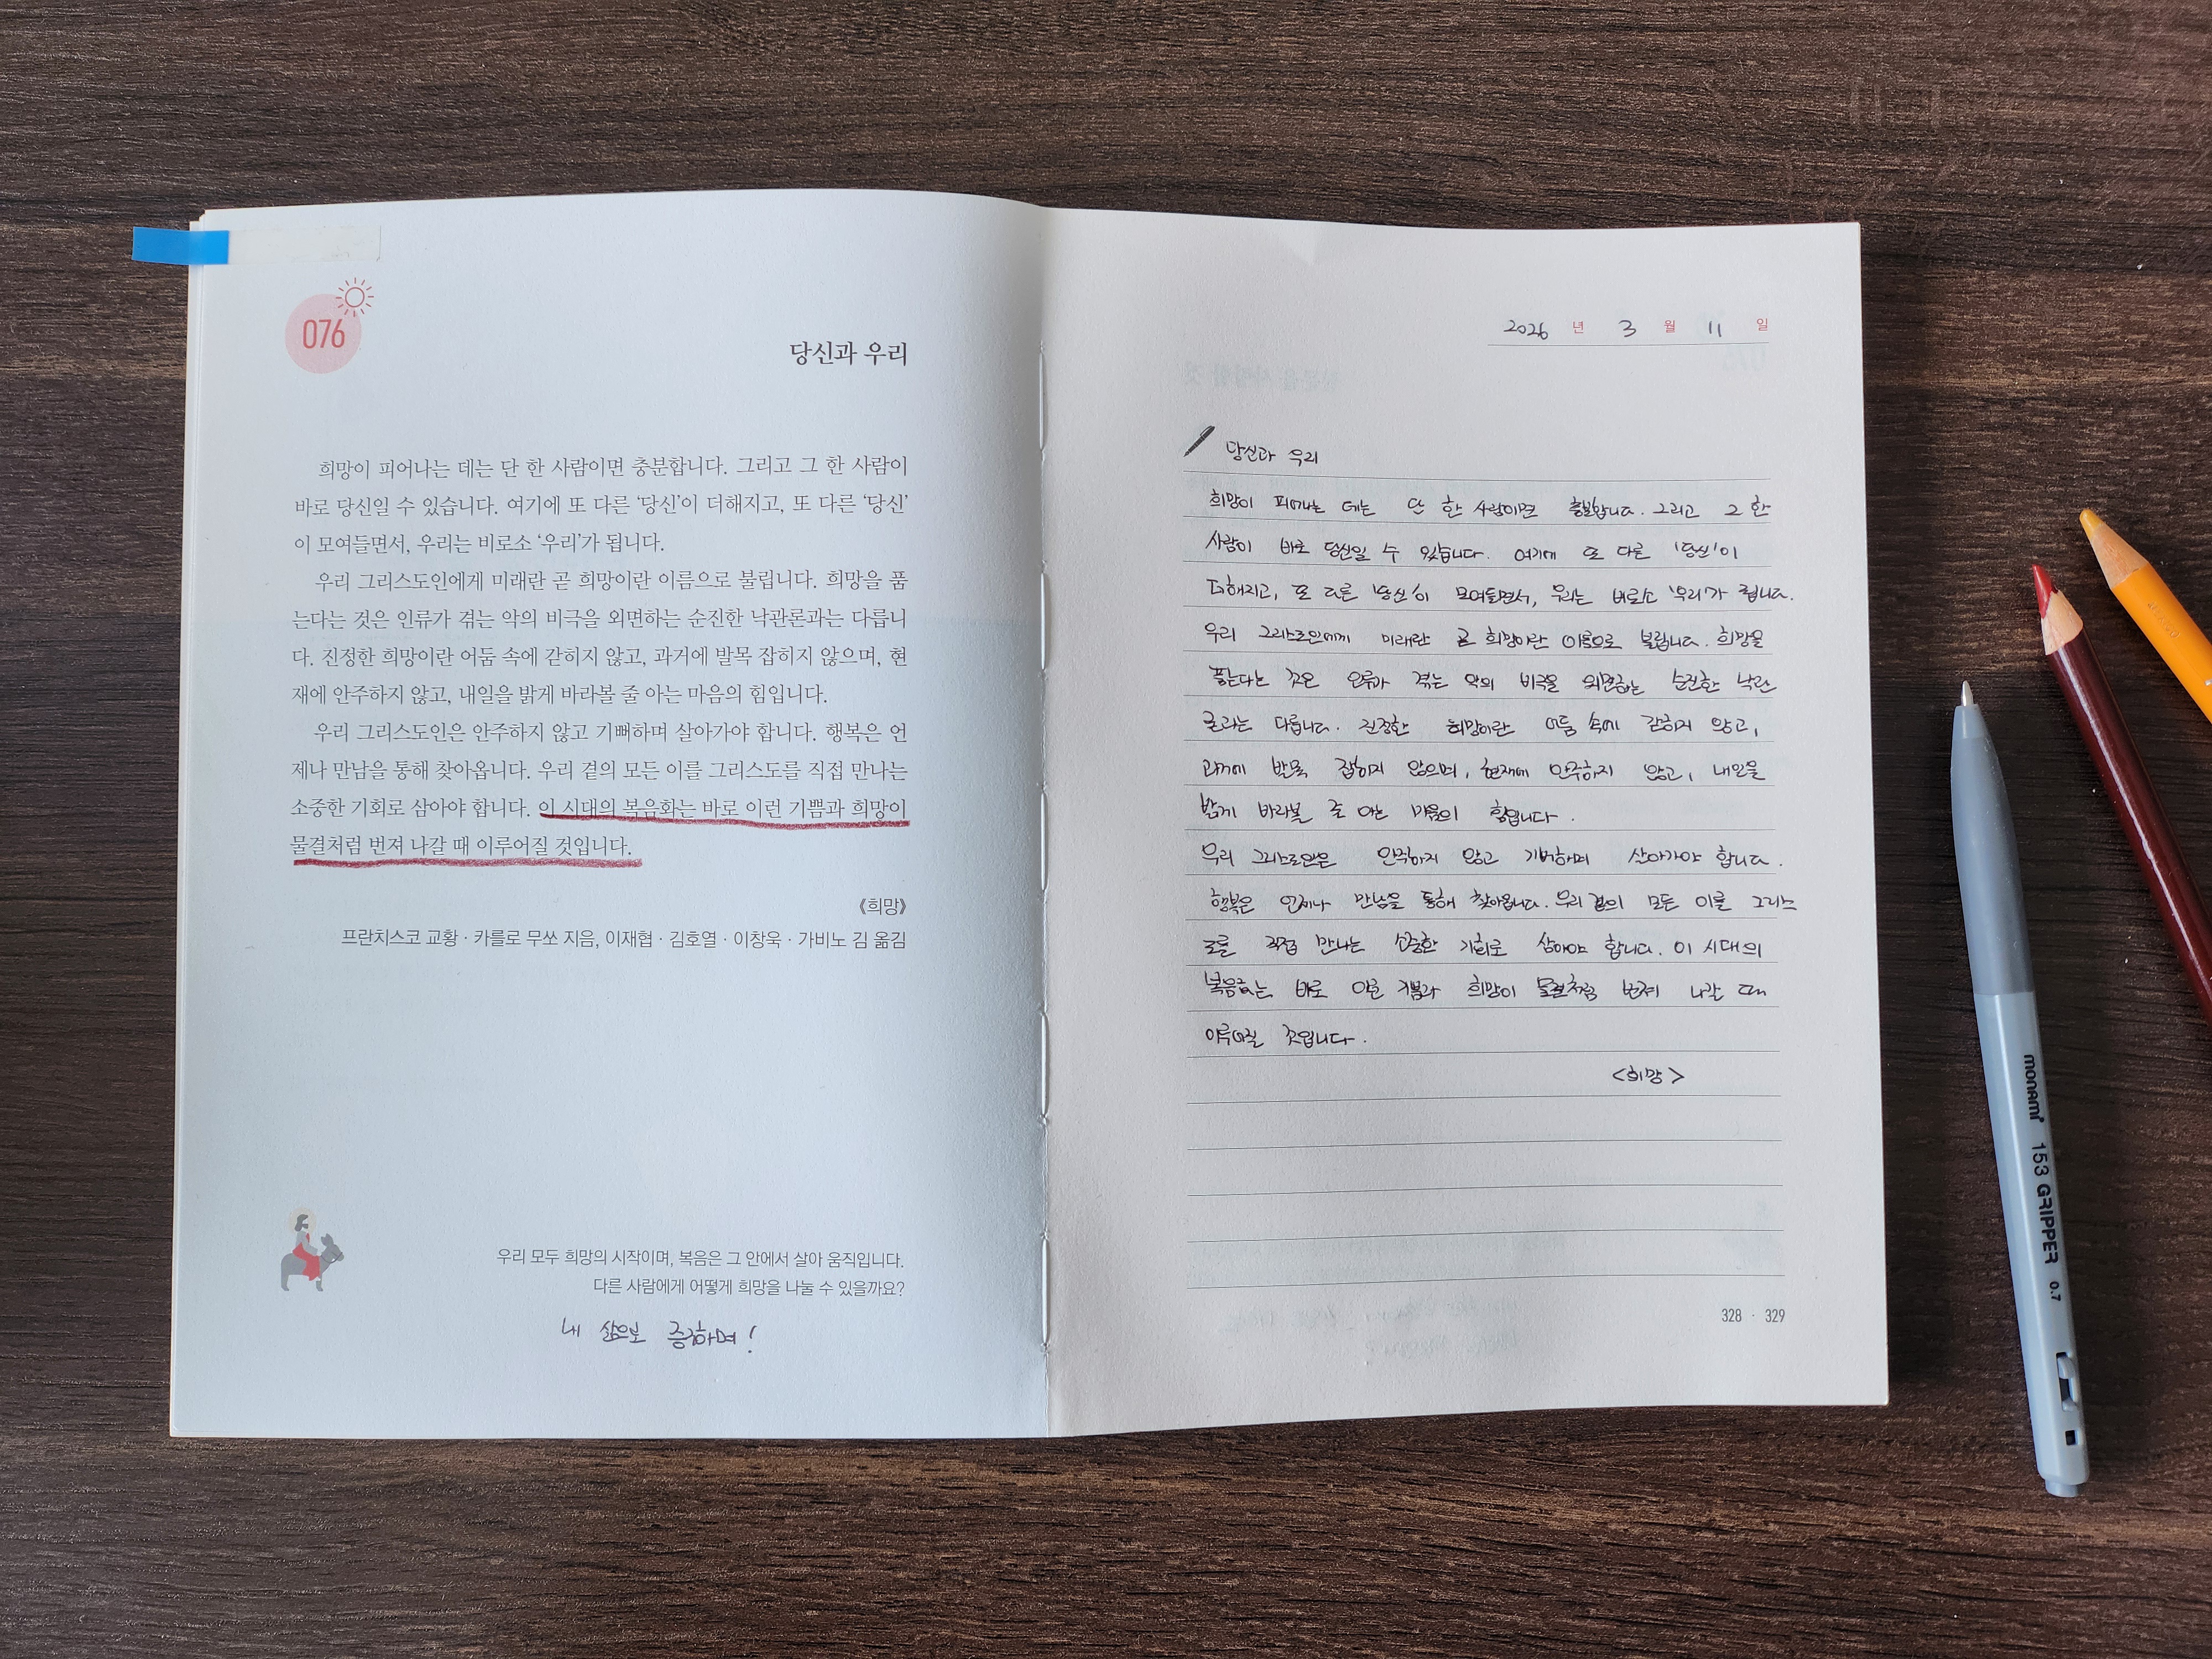 076
당신과 우리
희망이 피어나는 데는 단 한 사람이면 충분합니다. 그리고 그 한 사람이
바로 당신일 수 있습니다. 여기에 또 다른 ‘당신’이 더해지고, 또 다른 ‘당신’
이 모여들면서, 우리는 비로소 ‘우리’가 됩니다.
우리 그리스도인에게 미래란 곧 희망이란 이름으로 불립니다. 희망을 품
는다는 것은 인류가 겪는 악의 비극을 외면하는 순진한 낙관론과는 다릅니
다. 진정한 희망이란 어둠 속에 갇히지 않고, 과거에 발목 잡히지 않으며, 현
재에 안주하지 않고, 내일을 밝게 바라볼 줄 아는 마음의 힘입니다.
우리 그리스도인은 안주하지 않고 기뻐하며 살아가야 합니다. 행복은 언
제나 만남을 통해 찾아옵니다. 우리 곁의 모든 이를 그리스도를 직접 만나는
소중한 기회로 삼아야 합니다. 이 시대의 복음화는 바로 이런 기쁨과 희망이
물결처럼 번져 나갈 때 이루어질 것입니다.
《희망》
프란치스코 교황 · 카를로 무쏘 지음, 이재협 · 김호열 · 이창욱 · 가비노 김 옮김
우리 모두 희망의 시작이며, 복음은 그 안에서 살아 움직입니다.
다른 사람에게 어떻게 희망을 나눌 수 있을까요?
내 삶으로 증거하며!
2026 년 3 월 11 일
당신과 우리
희망이 피어나는 데는 단 한 사람이면 충분합니다. 그리고 그 한
사람이 바로 당신일 수 있습니다. 여기에 또 다른 '당신'이
더해지고, 또 다른 '당신'이 모여들면서, 우리는 비로소 '우리'가 됩니다.
우리 그리스도인에게 미래란 곧 희망이란 이름으로 불립니다. 희망을
품는다는 것은 인류가 겪는 악의 비극을 외면하는 순진한 낙관
론과는 다릅니다. 진정한 희망이란 어둠 속에 갇히지 않고,
과거에 발목 잡히지 않으며, 현재에 안주하지 않고, 내일을
밝게 바라볼 줄 아는 마음의 힘입니다.
우리 그리스도인은 안주하지 않고 기뻐하며 살아가야 합니다.
행복은 언제나 만남을 통해 찾아옵니다. 우리 곁의 모든 이를 그리스
도를 직접 만나는 소중한 기회로 삼아야 합니다. 이 시대의
복음화는 바로 이런 기쁨과 희망이 물결처럼 번져 나갈 때
이루어질 것입니다.
<희망>
328 · 329
monami 153 GRIPPER 0.7